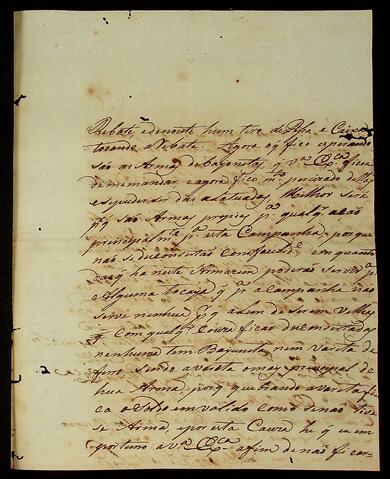 Rebate, e de noute hum tiro de Pessa e Caixas
tocando a Rebate. Agora oq' fico esperando
são as Armas de bayonetas q' V.ª Ex.ᶜⁱᵃ ficou
de me mandar, e agora fico m.ᵗᵒ percizado de
e se puder ser das Milhor será
p.ʳ q' são Armas propias p.ª qualq.ʳ acão
principalm.ᵗᵉ p.ª esta Campanha, porque
não se desconsertão com facilid.ᵉ em quanto
as q' ha neste Armazem poderão servir p.ª
Alguma tocaja q' p.ª a campanha não
serve nenhuma p.ʳ q' alem de serem velhas
q' com qualq.ʳ Couza ficão desconsertadas
nenhuma tem Bayoneta, nem vareta de
ferro, sendo a vareta o mais principal de
hua Arma, porq' quebrando a vareta fi-
ca o Soldo em valido como se não tive-
se Arma, e por esta Cauza he q' eu im-
portuno a V.ª Ex.ᶜⁱᵃ afim de não ficar-